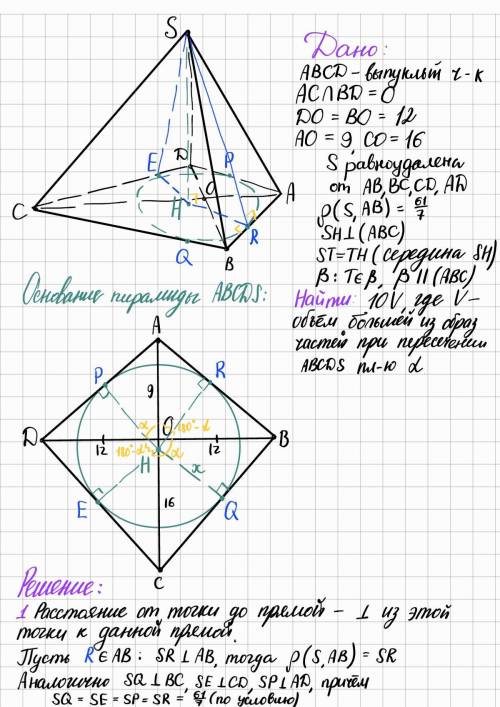 S
Дано:
ABCD – выпуклый ч-к
AC∩BD = O
DO = BO = 12
AO = 9, CO = 16
S равноудалена
от AB, BC, CD, AD
ρ(S, AB) = 61/7
SH⊥(ABC)
ST=TH (середина SH)
β: T∈β, β || (ABC)
Найти: 10V, где V –
объём большей из образ
частей при пересечении
ABCDS пл-ю α
E
D
P
O
A
C
H
R
Q
B
Основание пирамиды ABCDS:
A
P
R
9
α
O
180°-α
D
B
12
180°-α
12
H
α
x
E
16
Q
C
Решение:
1 Расстояние от точки до прямой – ⊥ из этой
точки к данной прямой.
Пусть R∈AB: SR⊥AB, тогда ρ(S, AB) = SR
Аналогично SQ⊥BC, SE⊥CD, SP⊥AD, причём
SQ = SE = SP = SR = 61/7 (по условию)